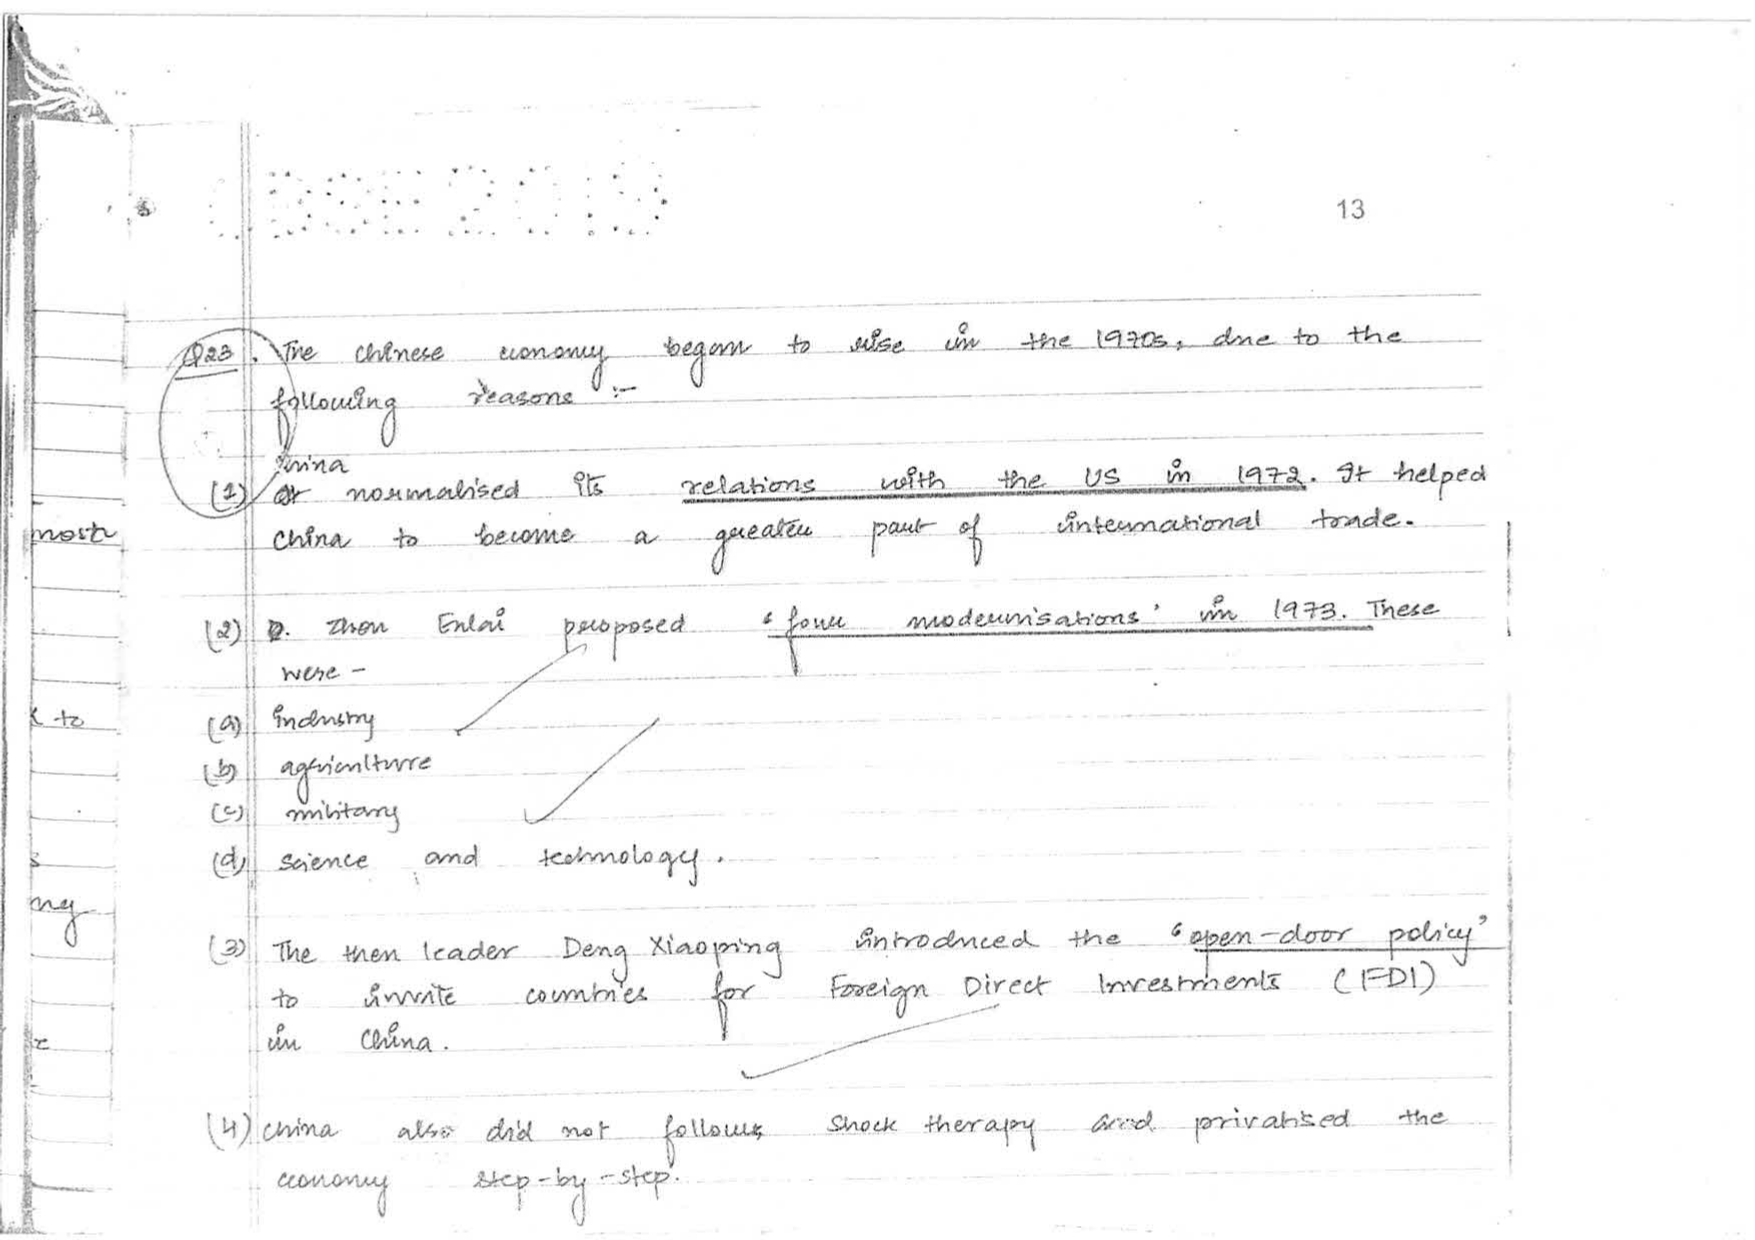 CBSE 2019
13
Q23. The chinese economy began to rise in the 1970s, due to the
following reasons :-
china
(1) normalised its relations with the US in 1972. It helped
most
china to become a greater part of international trade.
(2) Zhou Enlai proposed 'four modernisations' in 1973. These
were -
to
(a) industry
(b) agriculture
(c) military
(d) science and technology.
s
ng
(3) The then leader Deng Xiaoping introduced the 'open-door policy'
to invite countries for Foreign Direct Investments (FDI)
in China.
(4) china also did not follow shock therapy and privatised the
economy step-by-step.